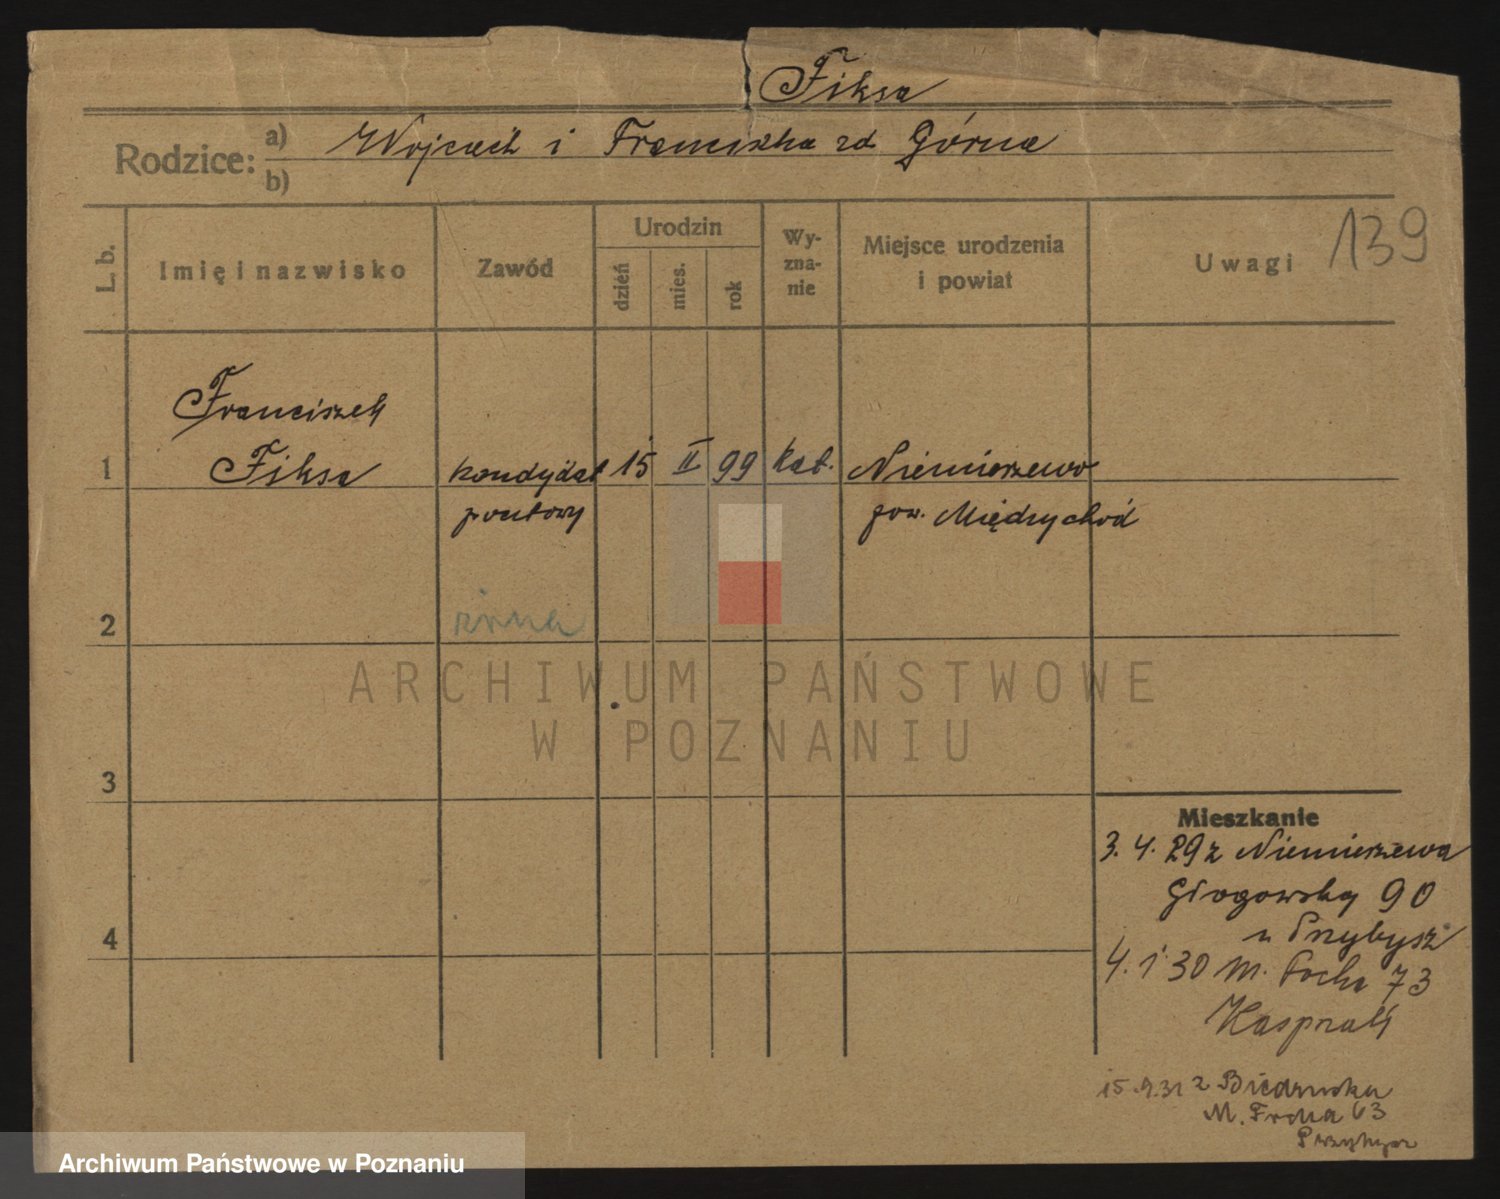 Fiksa
Rodzice: a) Wojciech i Franciszka zd Górna
b)
L. b. Imię i nazwisko Zawód Urodzin dzień mies. rok Wyznanie Miejsce urodzenia i powiat Uwagi 139
Franciszek
1 Fiksa kandydat 15 II 99 kat. Niemierzewo
pocztowy pow. Międzychód
2
ARCHIWUM PAŃSTWOWE
W POZNANIU
3
Mieszkanie
3. 4. 29 z Niemierzewa
Głogowska 90
u Przybysz
4
4. 1 30 M. Focha 73
Kasprzak
15.9.31 z Biedruska
M. Focha 63
Przybysz
Archiwum Państwowe w Poznaniu